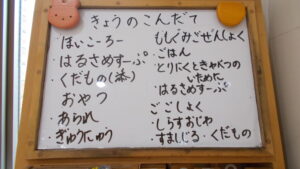 きょうのこんだて
・ほいこーろー
・はるさめすーぷ
・くだもの
おやつ
・あられ
・ぎゅうにゅう
もしぐみごぜんしょく
・ごはん
・とりにくときゃべつの
いために
・はるさめすーぷ
ごごしょく
・しらすおじや
・すましじる・くだもの